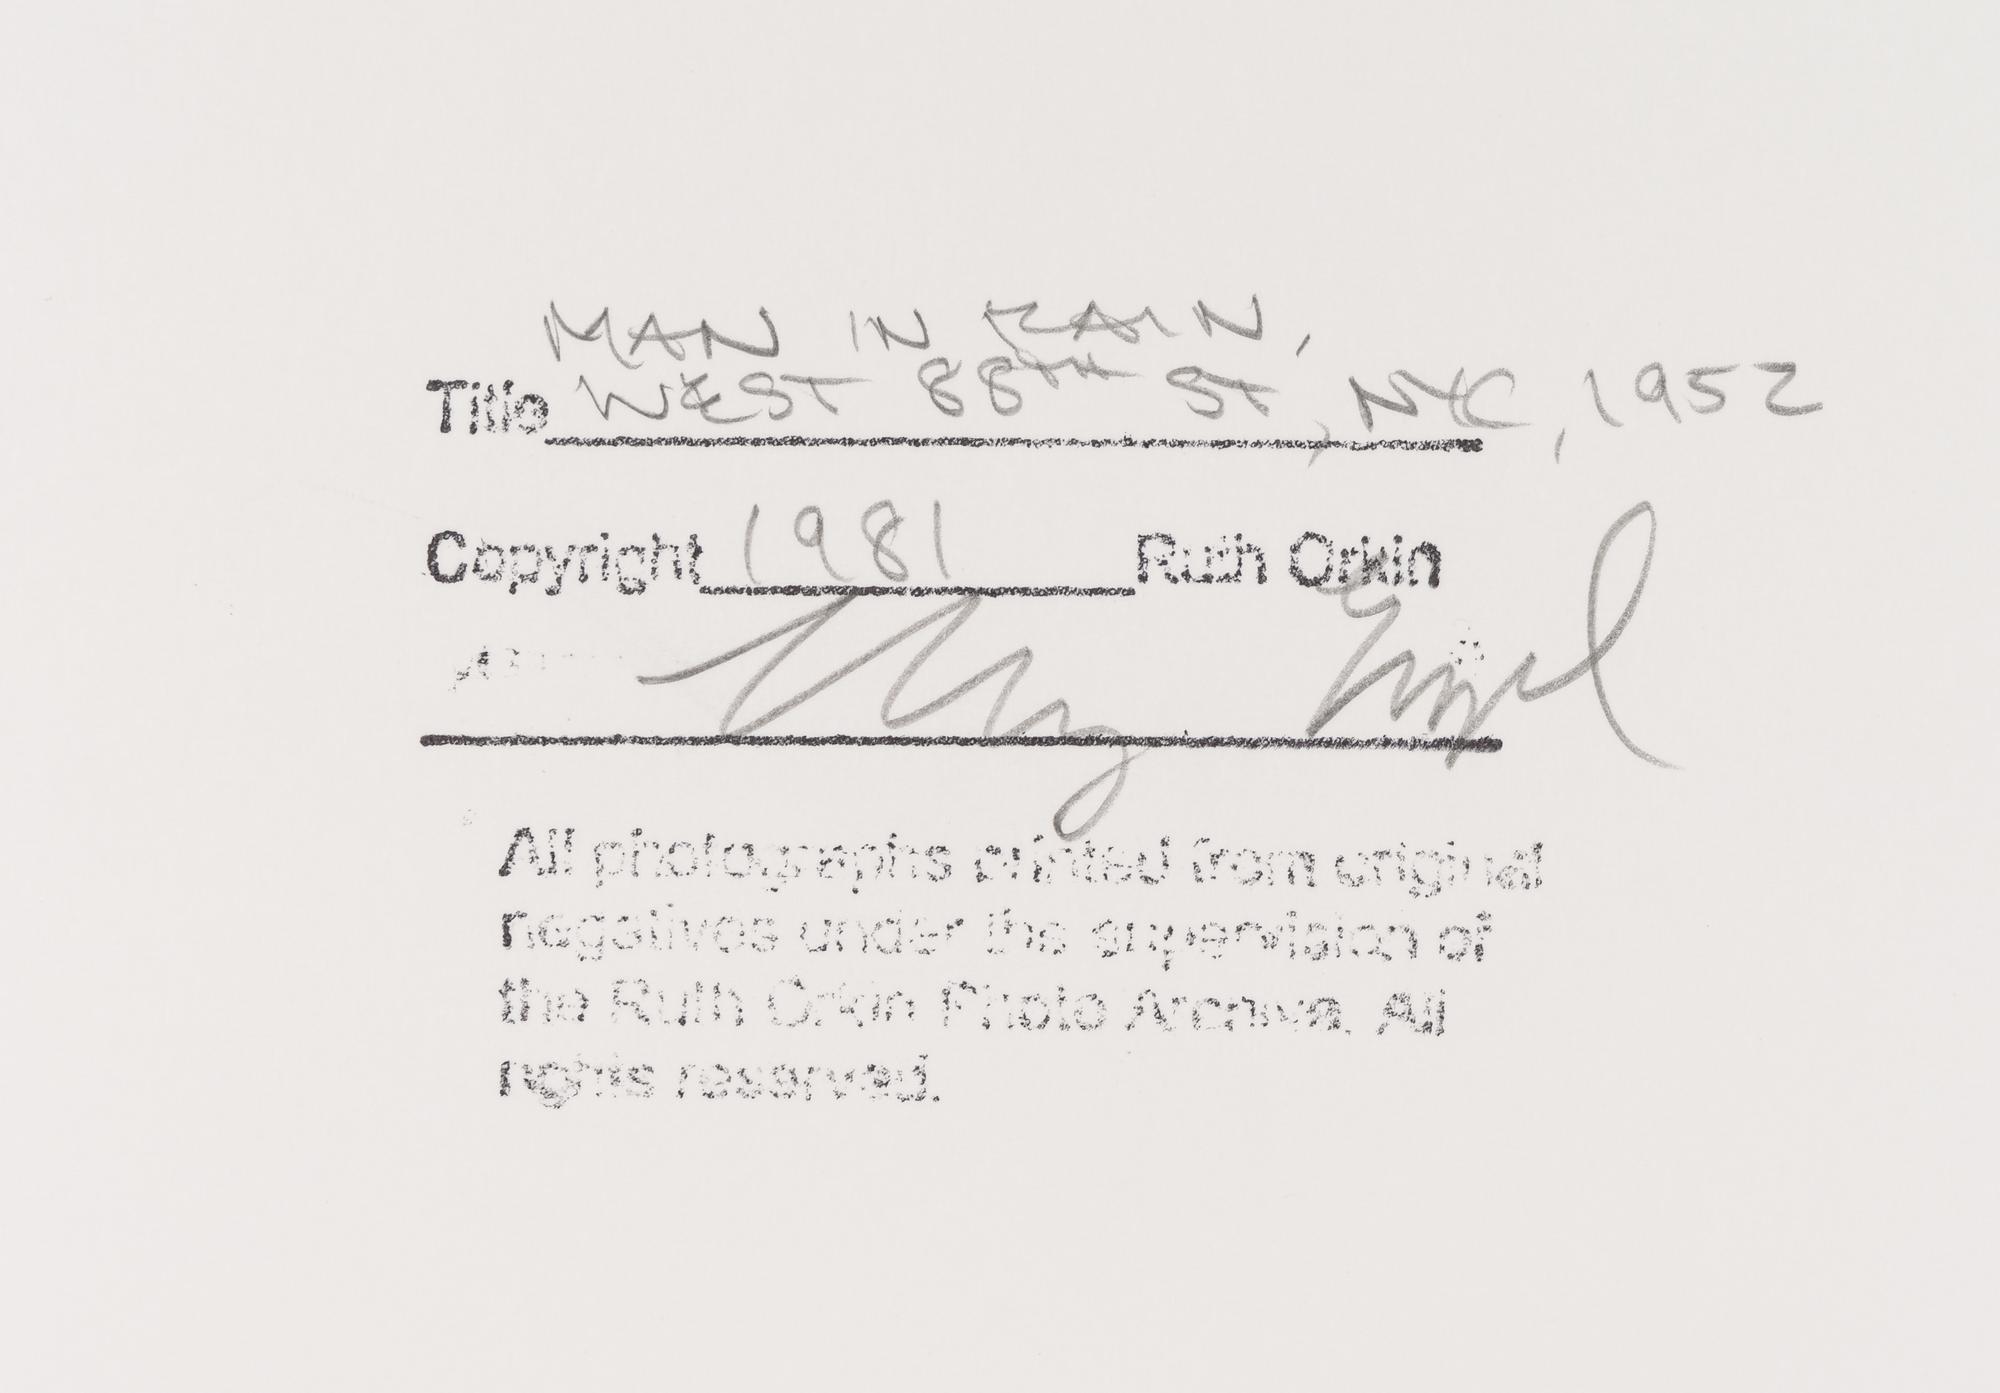 MAN IN RAIN,
Title WEST 88TH ST, NYC, 1952
Copyright 1981 Ruth Orkin
Mary Engel
All photographs printed from original
negatives under the supervision of
the Ruth Orkin Photo Archive. All
rights reserved.